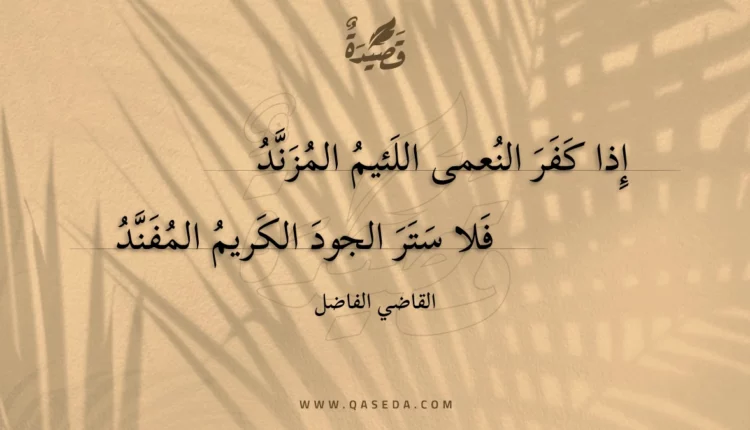 قَصِيدَةٌ
إِذا كَفَرَ النُعمى اللَئيمُ المُزَنَّدُ
فَلا سَتَرَ الجودَ الكَريمُ المُفَنَّدُ
القاضي الفاضل
WWW.QASEDA.COM